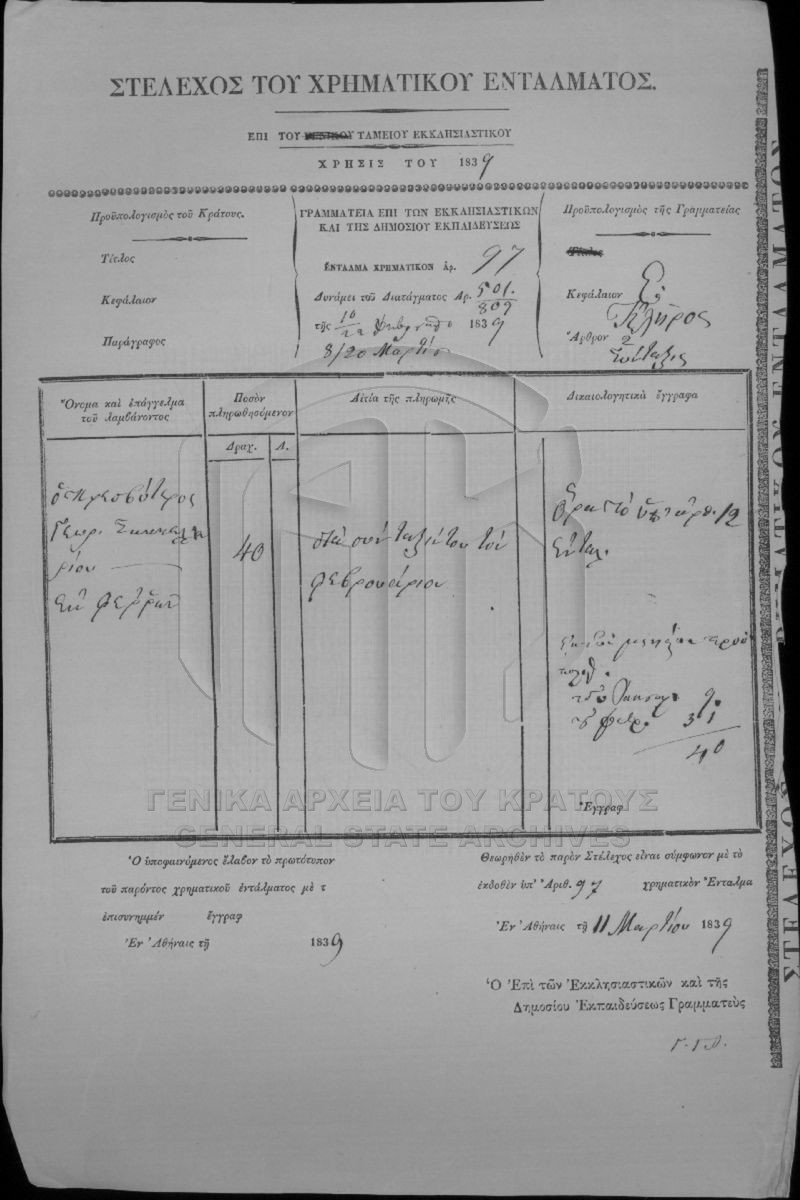 ΣΤΕΛΕΧΟΣ ΤΟΥ ΧΡΗΜΑΤΙΚΟΥ ΕΝΤΑΛΜΑΤΟΣ.
ΕΠΙ ΤΟΥ ΓΕΝΙΚΟΥ ΤΑΜΕΙΟΥ ΕΚΚΛΗΣΙΑΣΤΙΚΟΥ
ΧΡΗΣΙΣ ΤΟΥ 1839
Προϋπολογισμὸς τοῦ Κράτους.
Τίτλος
Κεφάλαιον
Παράγραφος
ΓΡΑΜΜΑΤΕΙΑ ΕΠΙ ΤΩΝ ΕΚΚΛΗΣΙΑΣΤΙΚΩΝ
ΚΑΙ ΤΗΣ ΔΗΜΟΣΙΟΥ ΕΚΠΑΙΔΕΥΣΕΩΣ
ΕΝΤΑΛΜΑ ΧΡΗΜΑΤΙΚΟΝ ἀρ. 97
Δυνάμει τοῦ Διατάγματος Αρ. 501.
809
τῆς 10/22 1839
8/20 Μαρτίου
Προϋπολογισμὸς τῆς Γραμματείας
Τίτλος
Κεφάλαιον
Κλῆρος
Ἄρθρον 2
Σύνταξις
Ὄνομα καὶ ἐπάγγελμα
τοῦ λαμβάνοντος
Ποσὸν
πληρωθησόμενον
Δραχ. Λ.
Αἰτία τῆς πληρωμῆς
Δικαιολογητικὰ ἔγγραφα
ὁ Πρεσβύτερος
Γεωρ.
ρίου
40
διὰ σύνταξίν του τὸν
φεβρουάριον
ὅρα τὸ ὑπ' ἀρθ. 12
ἔνταλ.
9.
31
40
Ἔγγραφ
ΓΕΝΙΚΑ ΑΡΧΕΙΑ ΤΟΥ ΚΡΑΤΟΥΣ
GENERAL STATE ARCHIVES
Ὁ ὑποφαινόμενος ἔλαβον τὸ πρωτότυπον
τοῦ παρόντος χρηματικοῦ ἐντάλματος μὲ τ
ἐπισυνημμέν ἔγγραφ
Ἐν Ἀθήναις τῇ 1839
Θεωρηθὲν τὸ παρὸν Στέλεχος εἶναι σύμφωνον μὲ τὸ
ἐκδοθὲν ὑπ' Ἀριθ. 97 χρηματικὸν Ἔνταλμα
Ἐν Ἀθήναις τῇ 11 Μαρτίου 1839
Ὁ Ἐπὶ τῶν Ἐκκλησιαστικῶν καὶ τῆς
Δημοσίου Ἐκπαιδεύσεως Γραμματεὺς